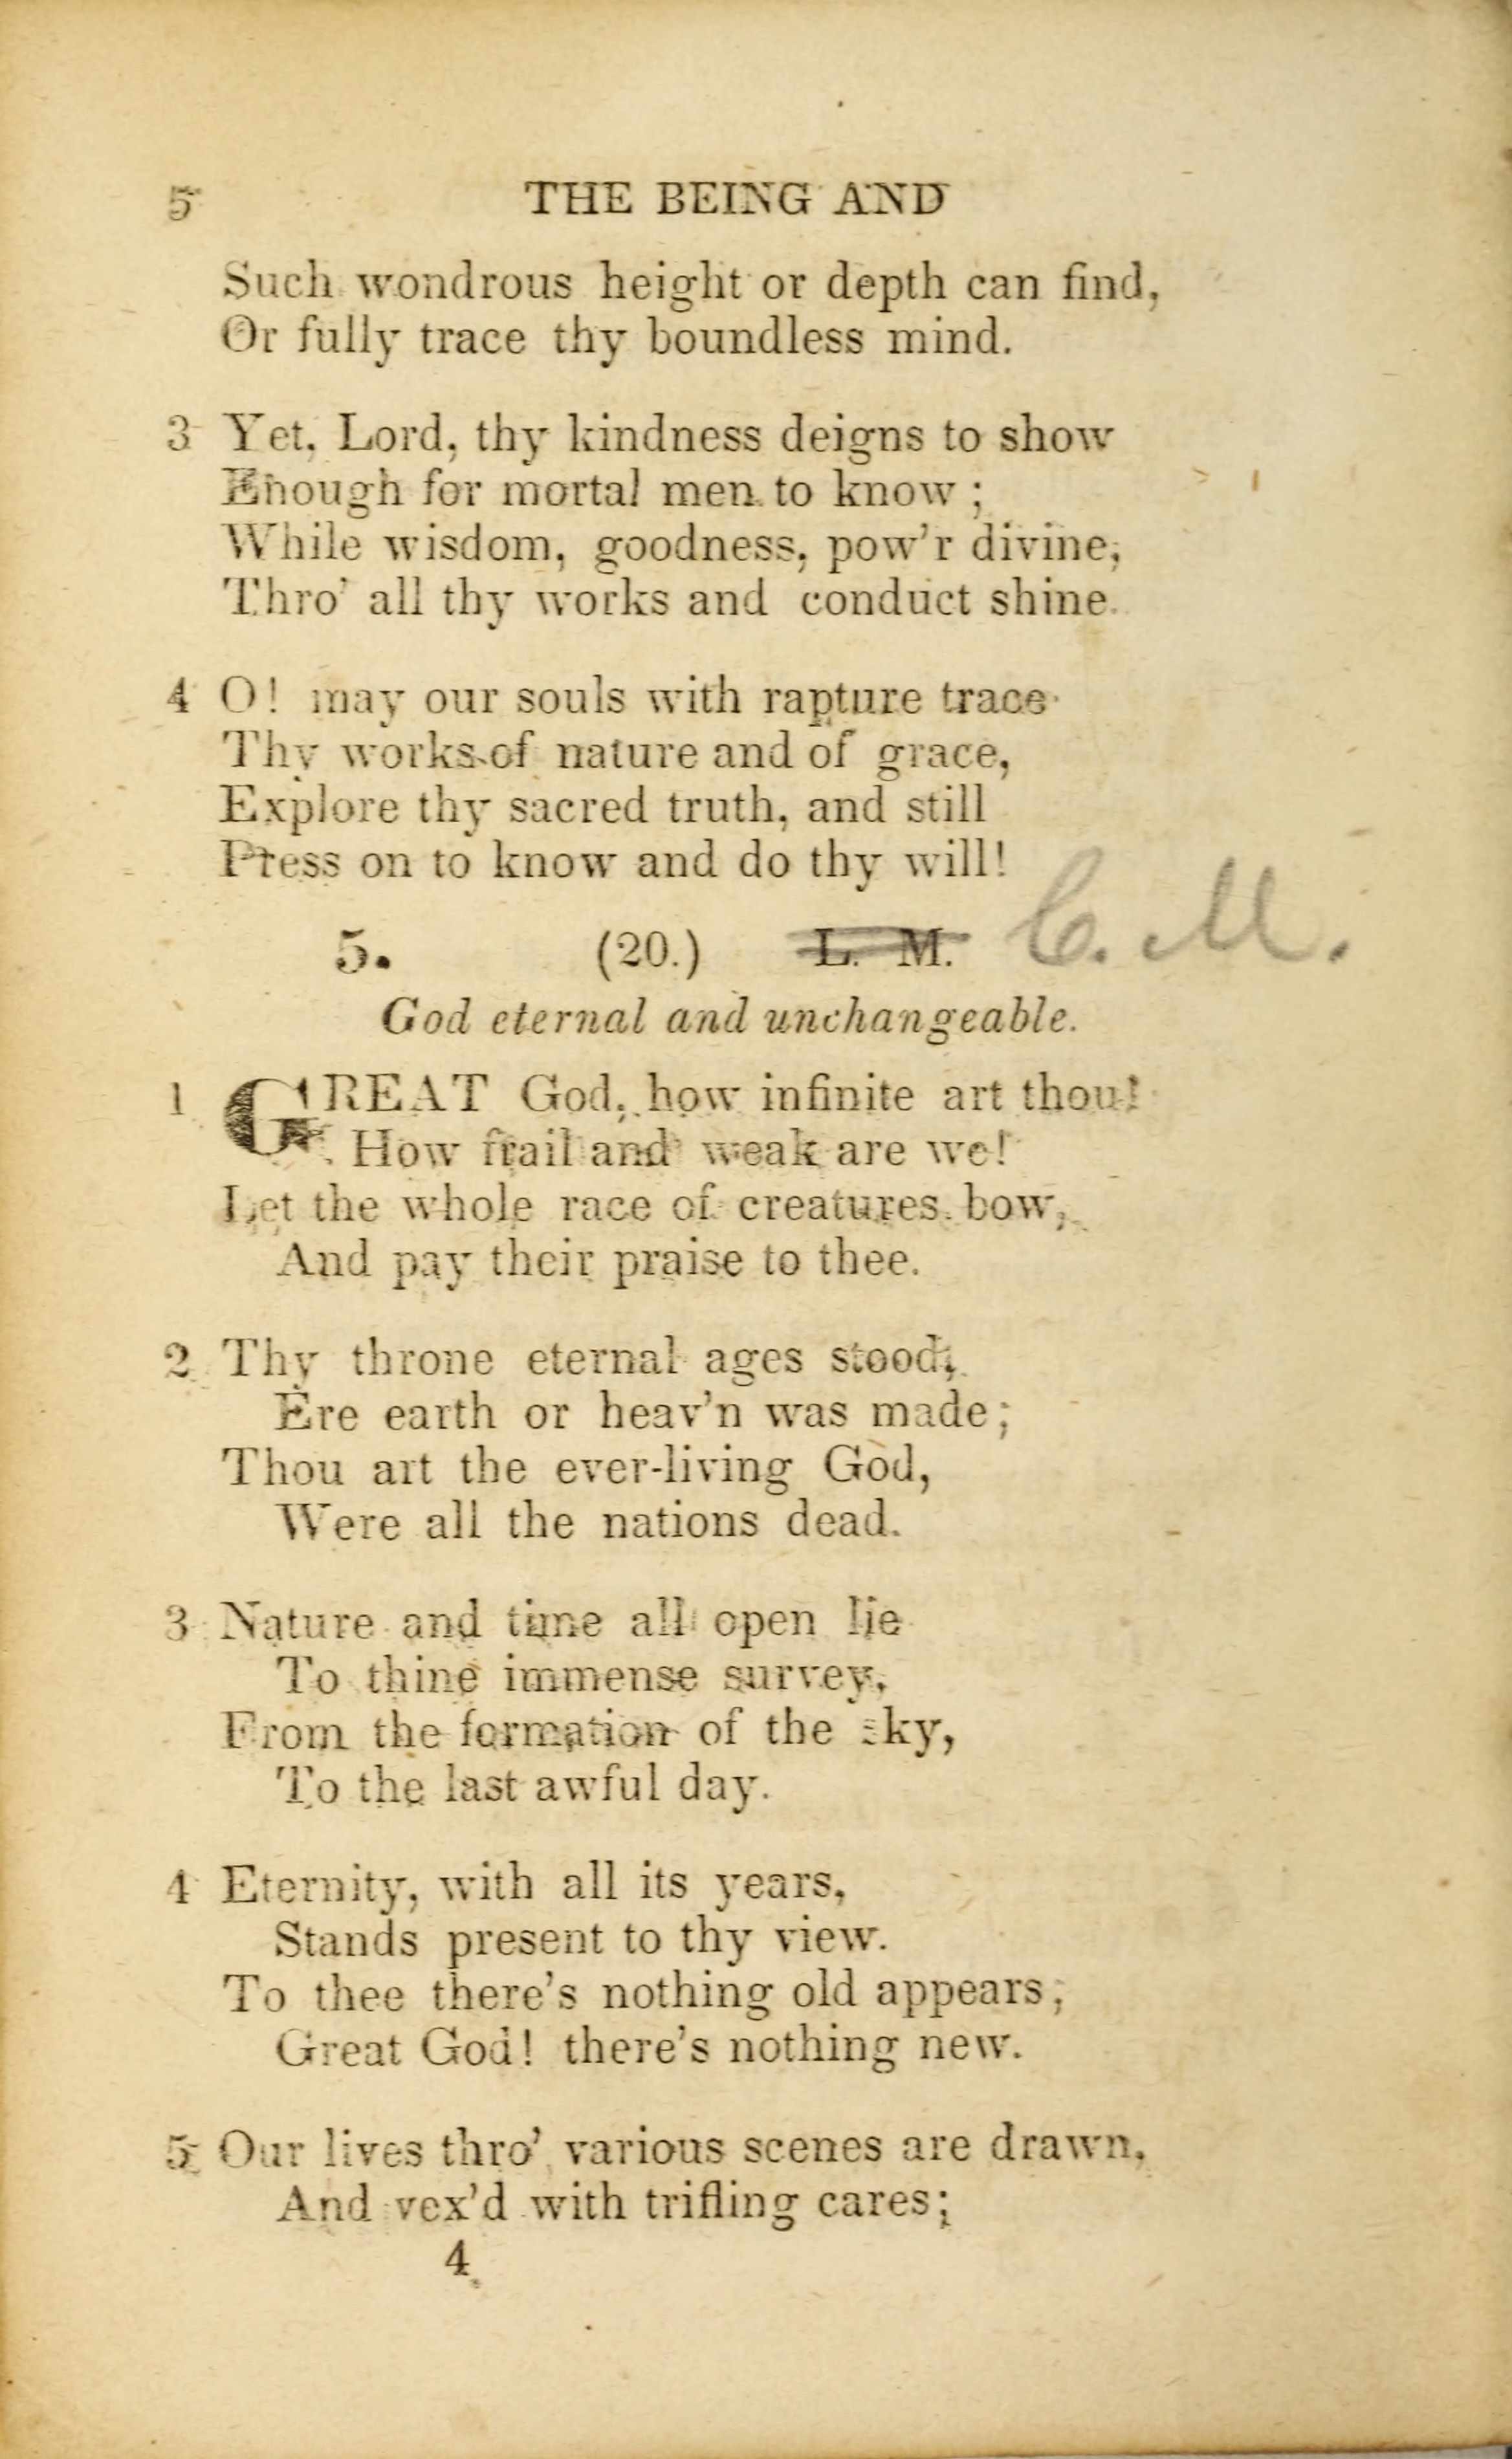 5 THE BEING AND
Such wondrous height or depth can find,
Or fully trace thy boundless mind.
3 Yet, Lord, thy kindness deigns to show
Enough for mortal men to know ;
While wisdom, goodness, pow'r divine,
Thro' all thy works and conduct shine.
4 O! may our souls with rapture trace
Thy works of nature and of grace,
Explore thy sacred truth, and still
Press on to know and do thy will!
5. (20.) L. M. C. M.
God eternal and unchangeable.
1 GREAT God, how infinite art thou!
How frail and weak are we!
Let the whole race of creatures bow,
And pay their praise to thee.
2 Thy throne eternal ages stood,
Ere earth or heav'n was made;
Thou art the ever-living God,
Were all the nations dead.
3 Nature and time all open lie
To thine immense survey,
From the formation of the sky,
To the last awful day.
4 Eternity, with all its years,
Stands present to thy view.
To thee there's nothing old appears,
Great God! there's nothing new.
5 Our lives thro' various scenes are drawn,
And vex'd with trifling cares;
4